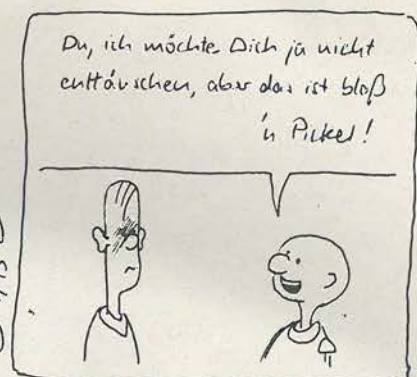 Du, ich möchte Dich ja nicht
enttäuschen, aber das ist bloß
'n Pickel!